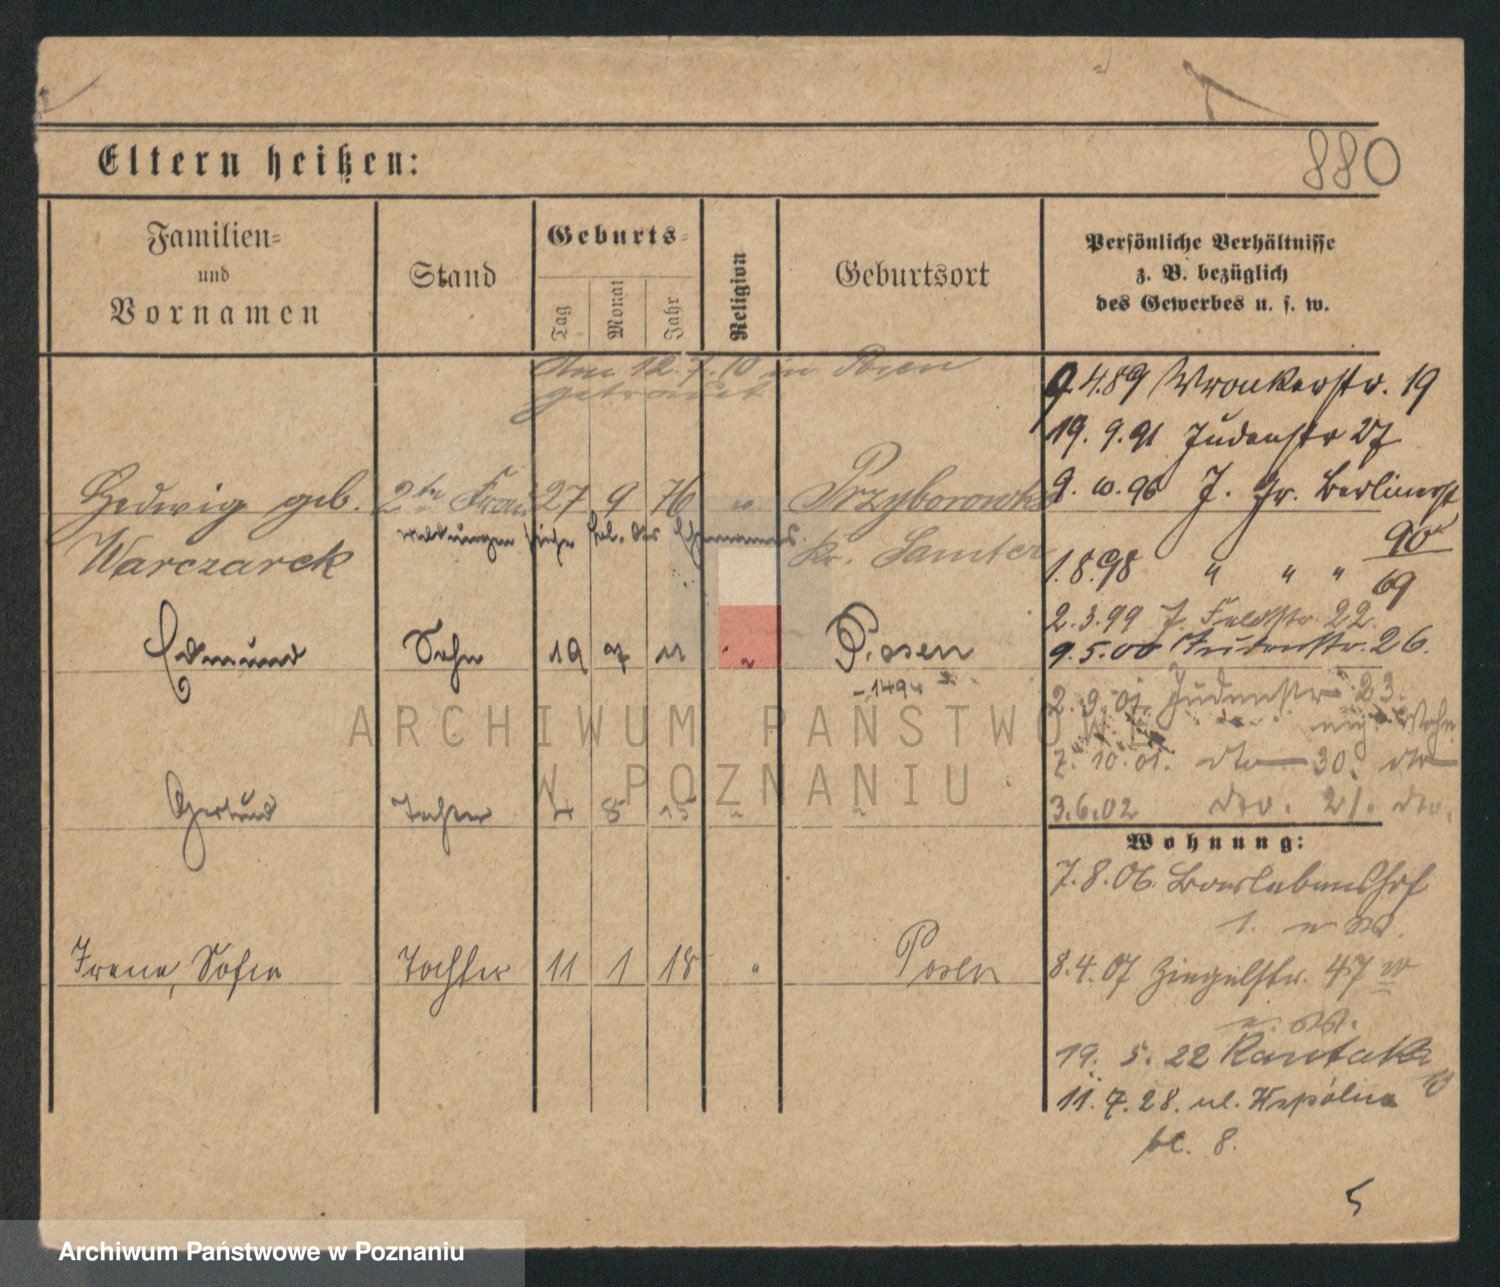 880
Eltern heißen:
Familien-
und
Vornamen
Stand
Geburts-
Tag
Monat
Jahr
Religion
Geburtsort
Persönliche Verhältnisse
z. B. bezüglich
des Gewerbes u. s. w.
Am 12.7.10 in Posen
getraut
9.4.89 Wronkerstr. 19
19.9.91 Judenstr 27
Hedwig geb. 2te Frau 27 9 76 " Przyborowko
9.10.96 J. Gr. Berlinerst
90
Warczarek
siehe des Ehemannes
Kr. Samter
1.8.98 " " " 69
2.3.99 J. Feldstr. 22.
Edmund Sohn 19 7 11 " Posen
9.5.00 Judenstr. 26.
-1494
2.9.01. Judenstr 23.
Wohn
2.10.01. dto 30. dto
Gertrud Tochter 4 8 15 " "
3.6.02 dto. 21. dto.
Wohnung:
7.8.06.
Irene, Sofie Tochter 11 1 18 " Posen
8.4.07 Ziegelstr. 47
19. 5. 22 Rautake
11.7.28. ul. Wspólna
bl. 8.
5
ARCHIWUM PAŃSTWOWE
W POZNANIU
Archiwum Państwowe w Poznaniu